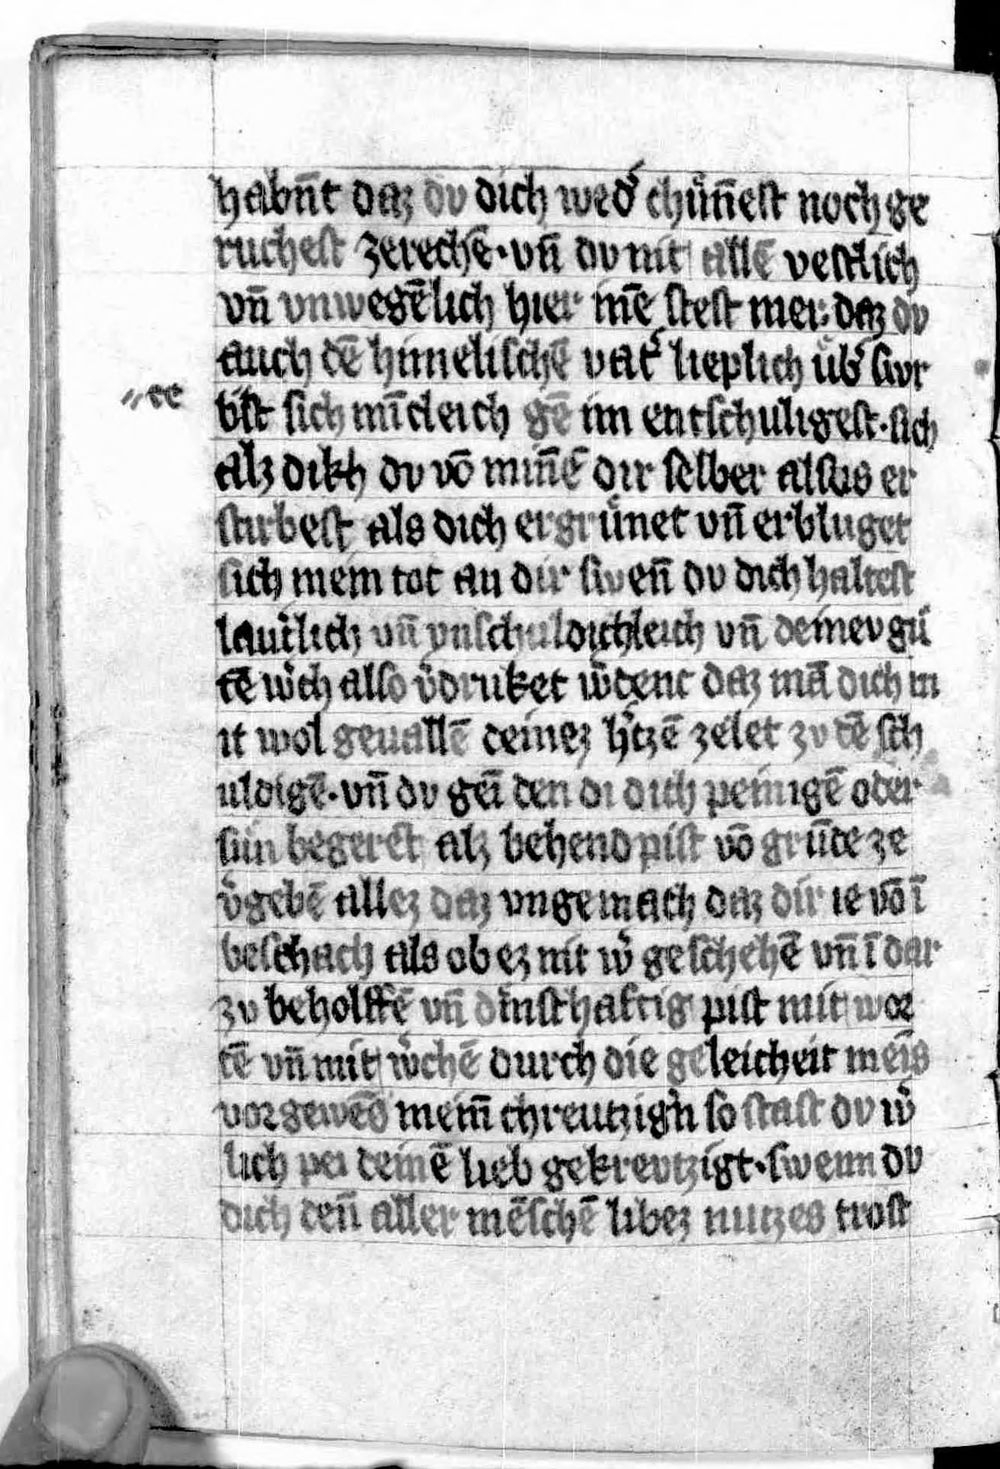 habn̄t daz dv dich wed᾽ chu̍n̄est noch ge
ruchest zerechē · vn̄ dv mit allē vestlich
vn̄ vnwegēlich hier inē stest mer · daz dv
auch dē himelischē vat᾽ lieplich u̍b᾽ swr
te
bist sich mīcleich gē im entschuligest · sich
alz dikh dv vō minn̄ē dir selber alsus er
stirbest als dich ergru̍net vn̄ erbluget
sich mein tot an dir swen̄ dv dich haltest
laut᾽lich vn̄ vnschuldichleich vn̄ deinev gu̍
tē w᾽ch also v᾽druket w᾽dent daz mā dich in
it wol geuallē deinez h᾽tzē zelet zv dē sch
uldigē · vn̄ dv gēi den di dich peinigē oder
sün begeret alz behend pist vō grūde ze
v᾽gebē allez daz vngemach daz dir ie vō ī
beschach als ob ez nit w᾽ geschehē vn̄ ī dar
zv beholffē vn̄ dinsthaftig pist mit wor
tē vn̄ mit w᾽chē durch die geleicheit meīs
vorgewēd meim̄ chreutzig᾽n so stast dv w᾽
lich pei deinē lieb gekrevtzigt · swenn dv
dich den̄ aller mēschē libez nutzes trost